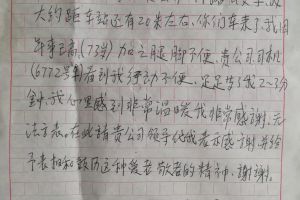 大约距车站还有20米左右,你们车来了,我因
年事已高(73岁)加之腿脚不便,贵公司司机
(6772号)看到我行动不便,足足等了我2~3分
钟,我心里感到非常温暖我非常感谢,无
法言表。在此请贵公司领导代我表示感谢,并给
予表扬和发扬这种爱老敬老的精神,谢谢。